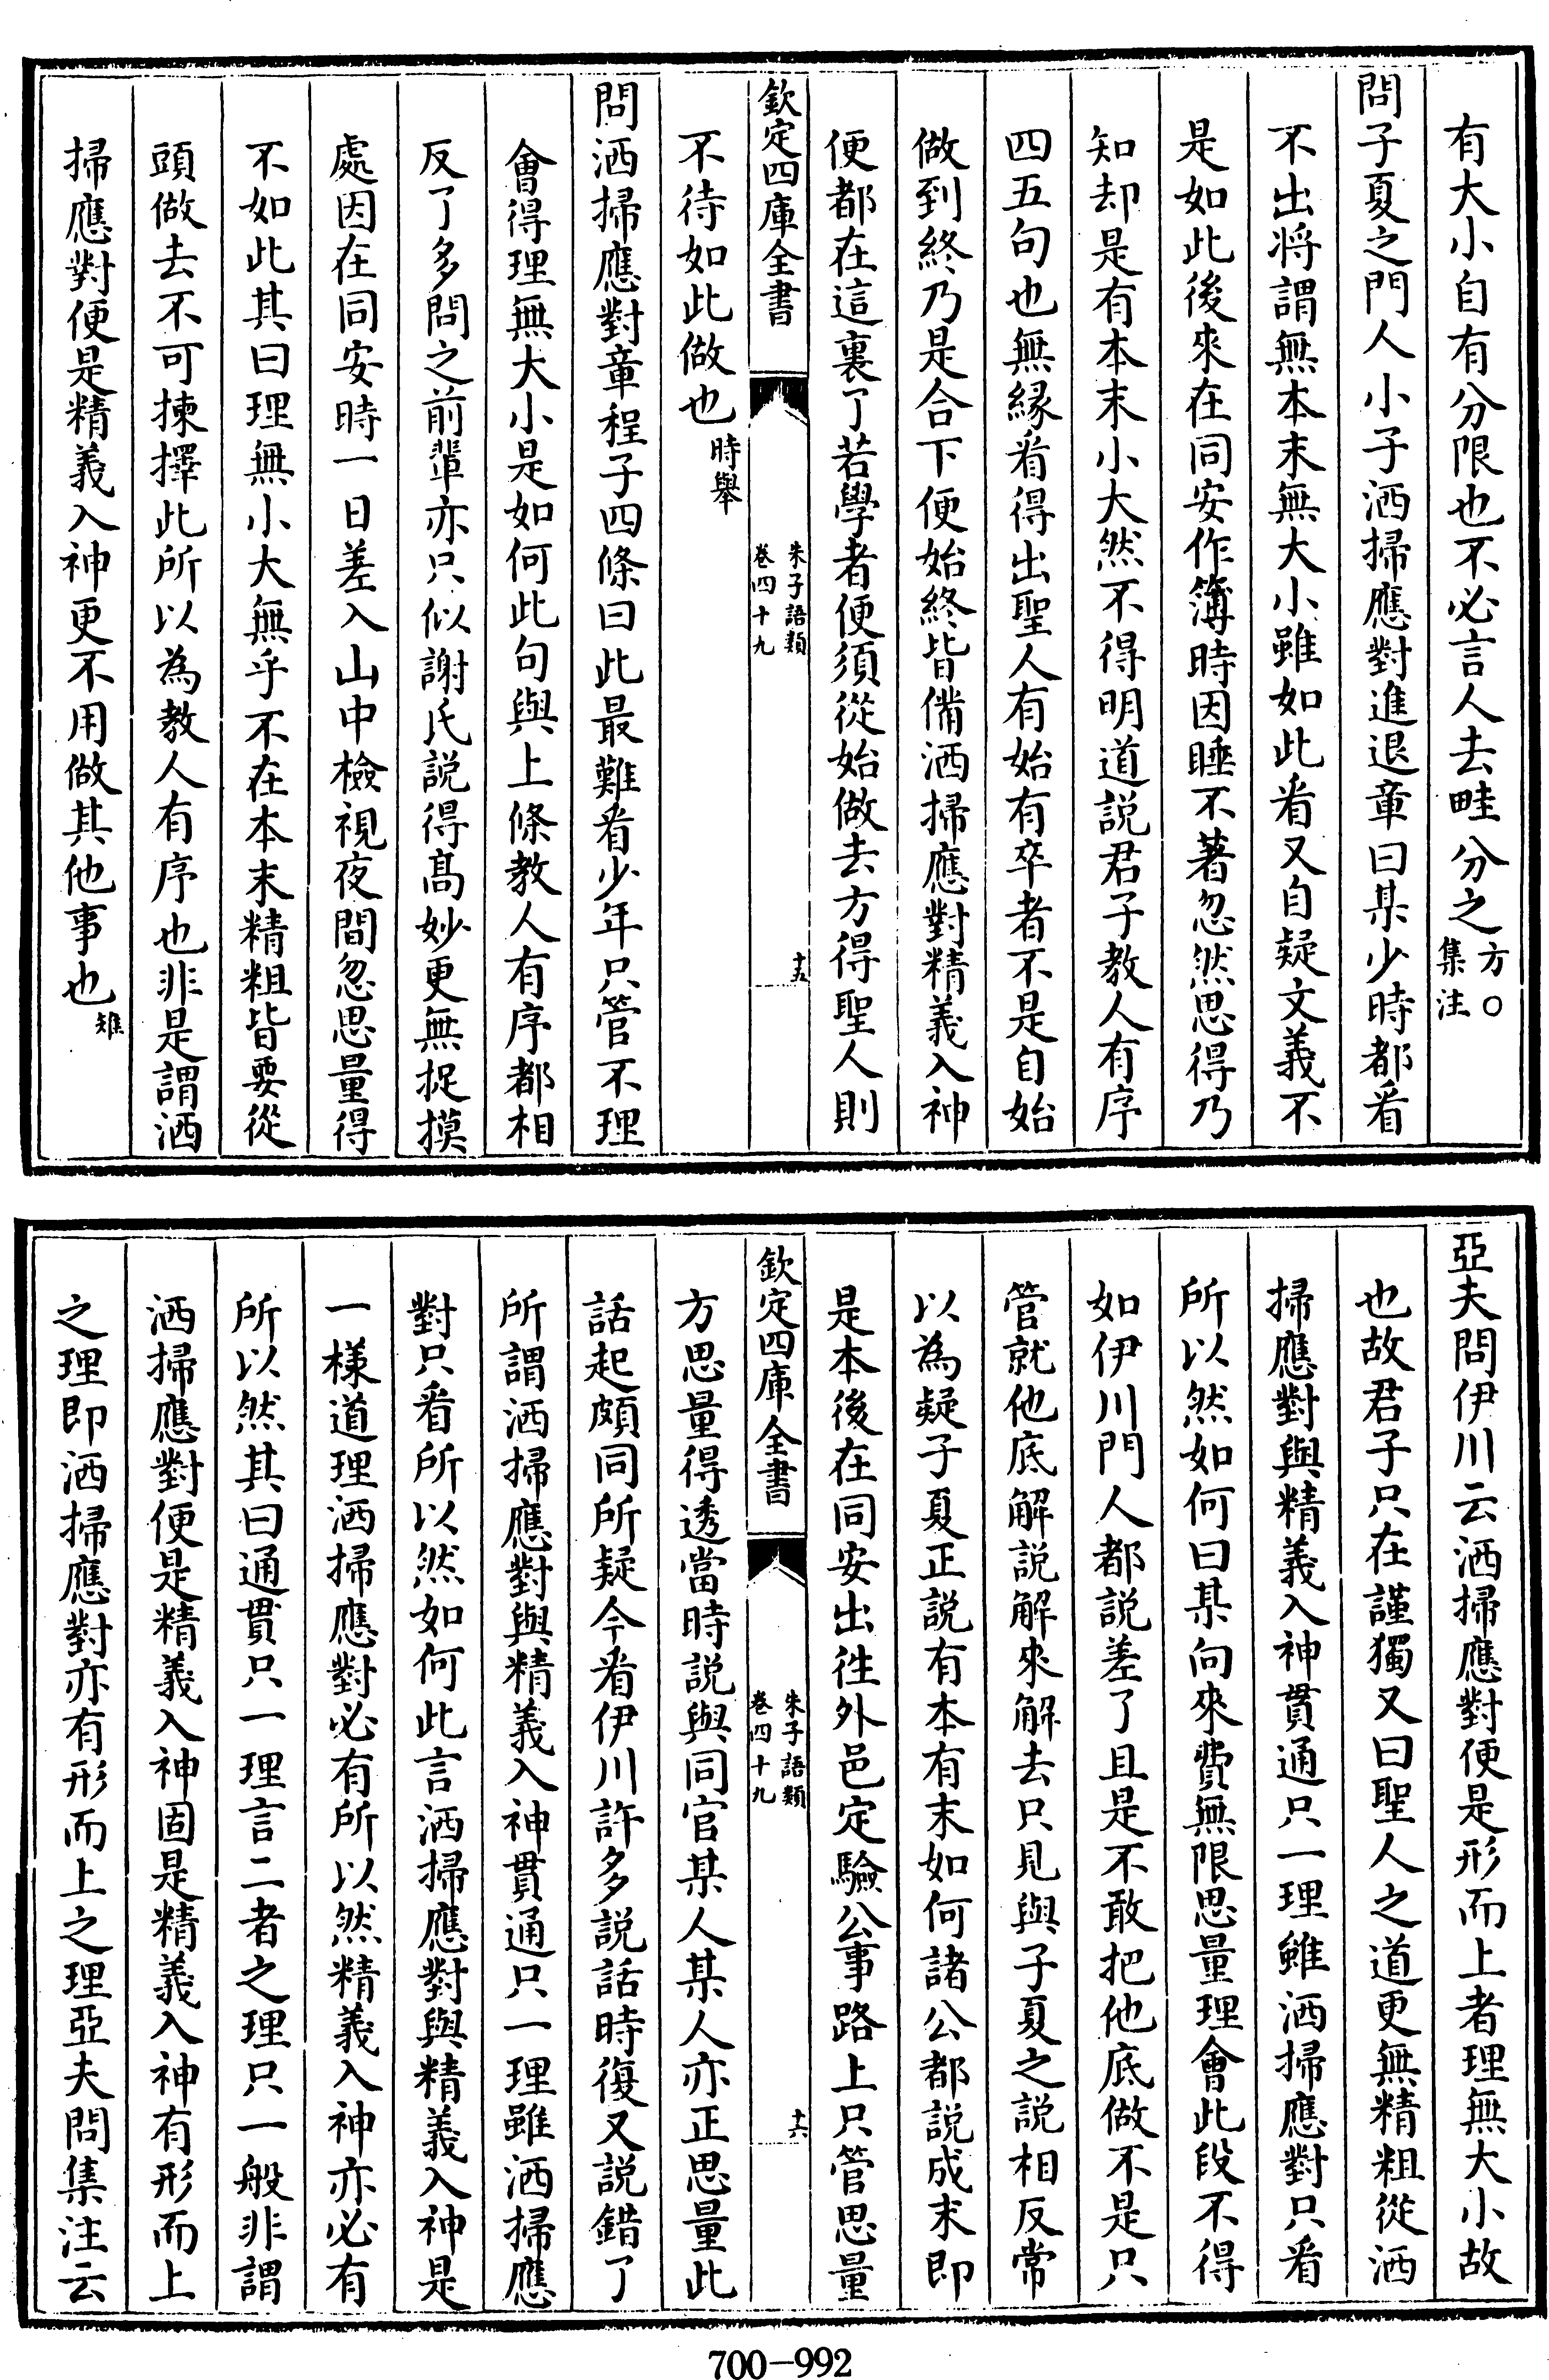 有大小自有分限也不必言人去畦分之方〇集注
問子夏之門人小子洒掃應對進退章曰某少時都看
不出将謂無本末無大小雖如此看又自疑文義不
是如此後來在同安作簿時因睡不著忽然思得乃
知却是有本末小大然不得明道説君子教人有序
四五句也無緣看得出聖人有始有卒者不是自始
做到終乃是合下便始終皆備洒掃應對精義入神
便都在這裏了若學者便須從始做去方得聖人則
欽定四庫全書
朱子語類
卷四十九
十五
不待如此做也時舉
問洒掃應對章程子四條曰此最難看少年只管不理
會得理無大小是如何此句與上條教人有序都相
反了多問之前輩亦只似謝氏説得髙妙更無捉摸
處因在同安時一日差入山中檢視夜間忽思量得
不如此其曰理無小大無乎不在本末精粗皆要從
頭做去不可揀擇此所以為教人有序也非是謂洒
掃應對便是精義入神更不用做其他事也雉
亞夫問伊川云洒掃應對便是形而上者理無大小故
也故君子只在謹獨又曰聖人之道更無精粗從洒
掃應對與精義入神貫通只一理雖洒掃應對只看
所以然如何曰某向來費無限思量理會此段不得
如伊川門人都説差了且是不敢把他底做不是只
管就他底解説解來解去只見與子夏之説相反常
以為疑子夏正説有本有末如何諸公都説成末即
是本後在同安出徃外邑定驗公事路上只管思量
欽定四庫全書
朱子語類
卷四十九
十六
方思量得透當時説與同官某人某人亦正思量此
話起頗同所疑今看伊川許多説話時復又説錯了
所謂洒掃應對與精義入神貫通只一理雖洒掃應
對只看所以然如何此言洒掃應對與精義入神是
一様道理洒掃應對必有所以然精義入神亦必有
所以然其曰通貫只一理言二者之理只一般非謂
洒掃應對便是精義入神固是精義入神有形而上
之理即洒掃應對亦有形而上之理亞夫問集注云
700-992